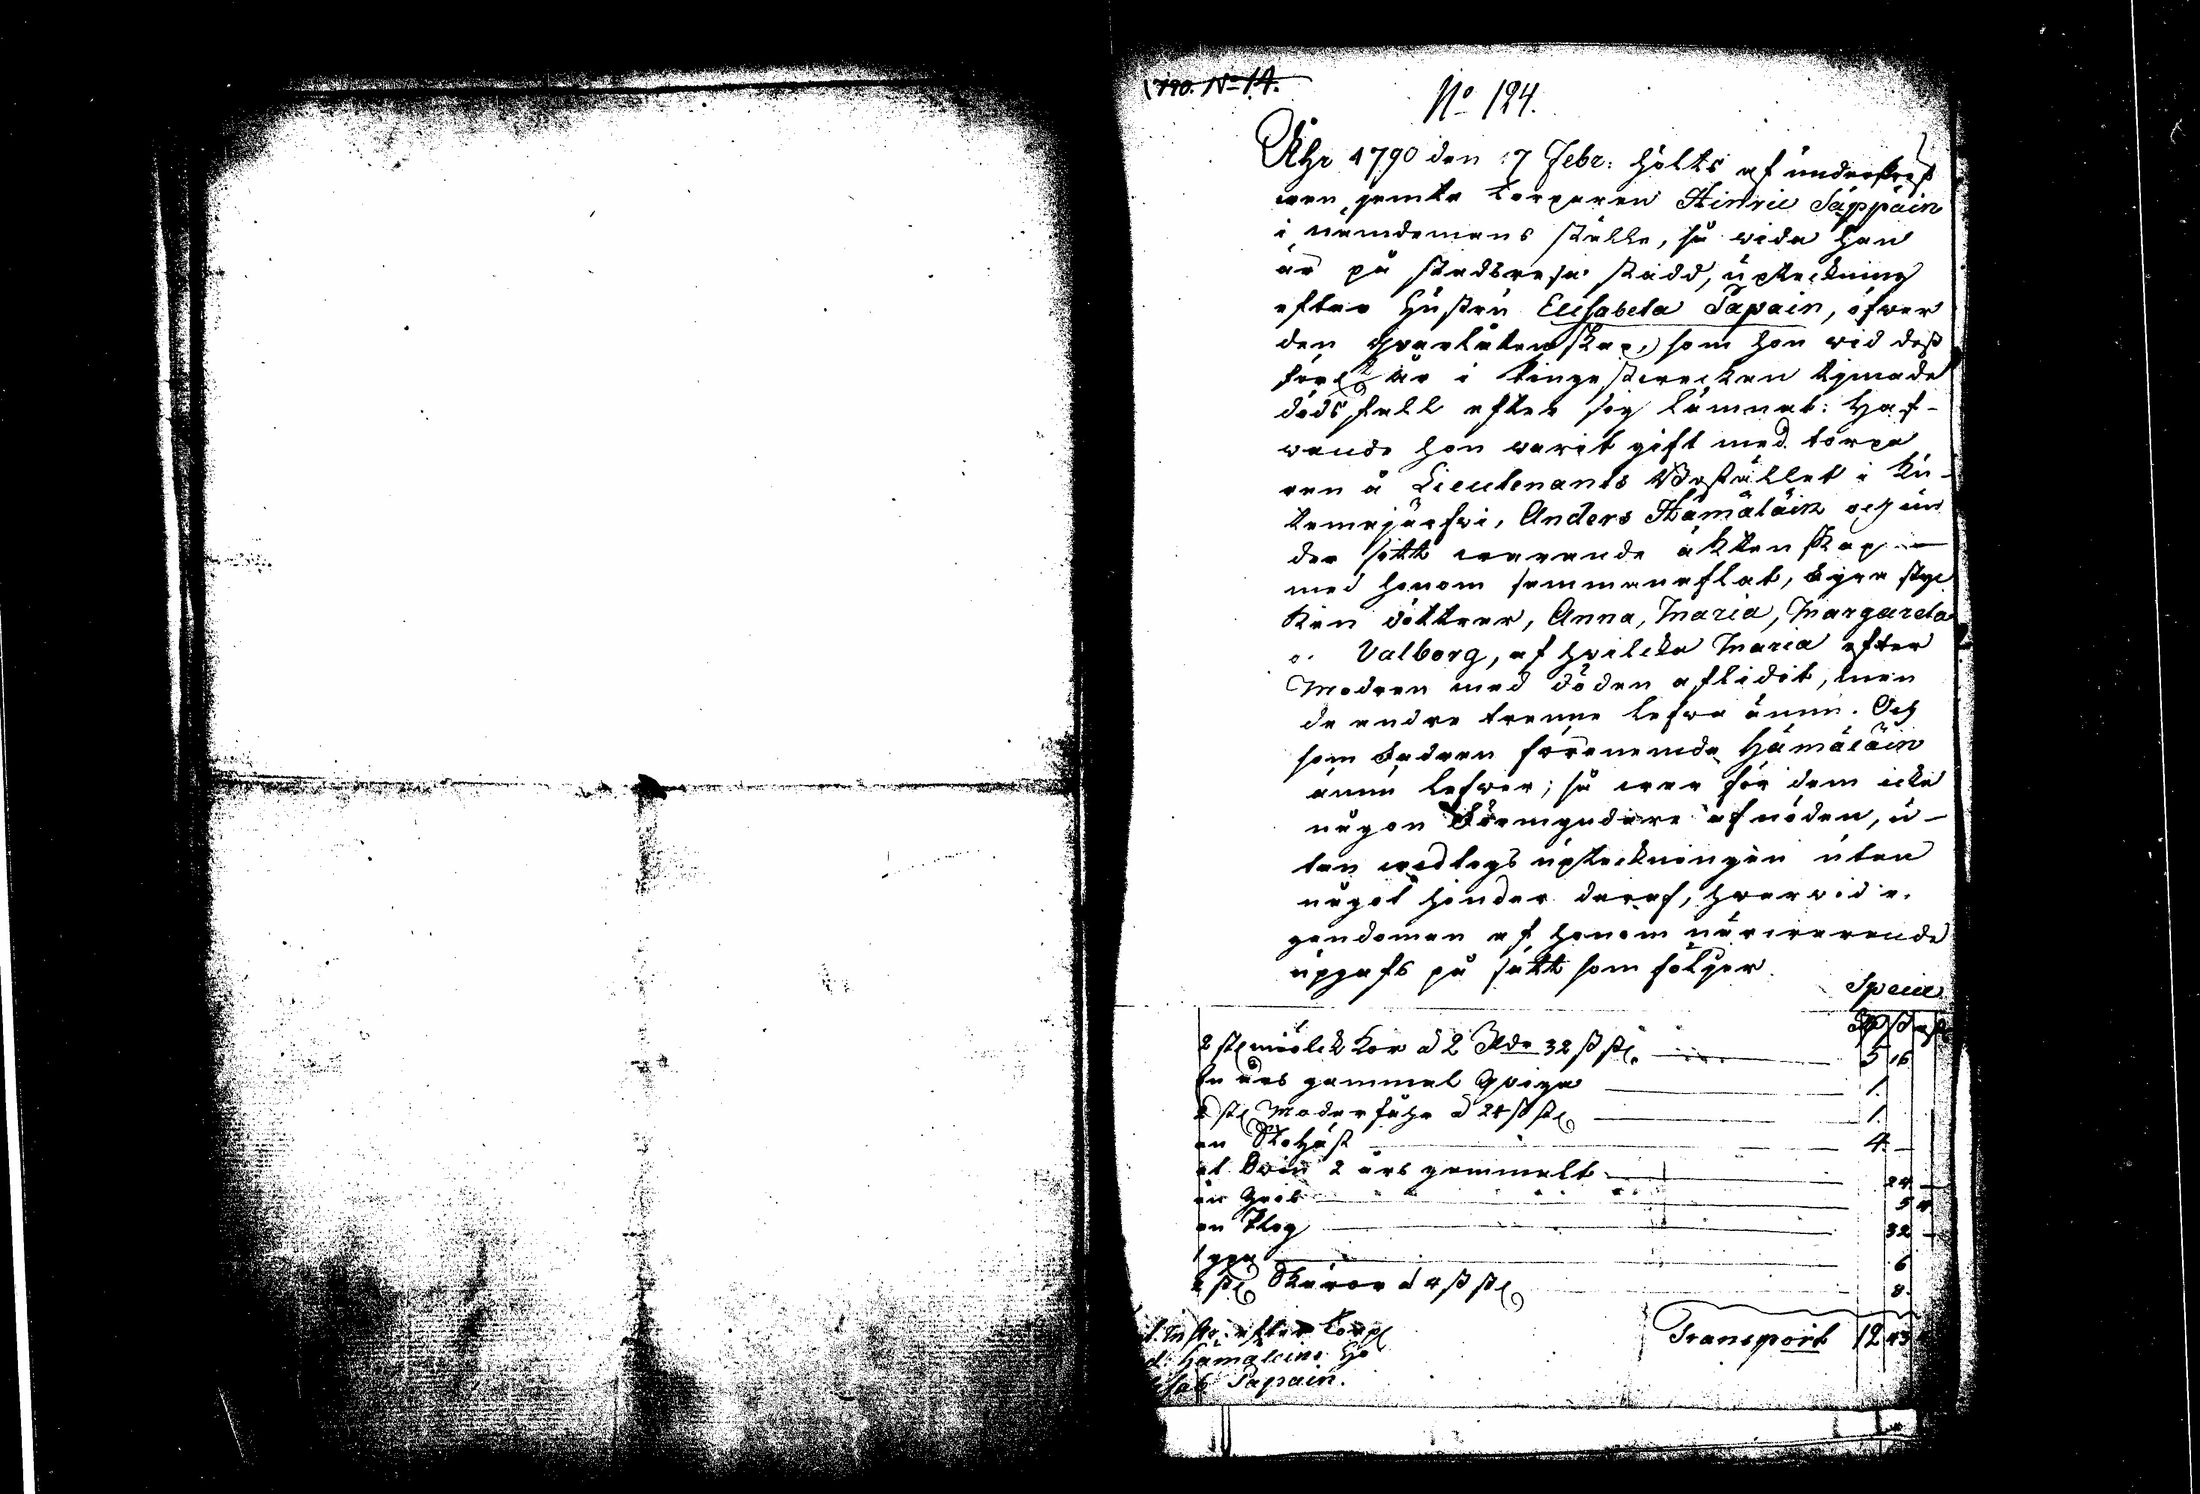 1790. No 14.
No 124.
Åhr 1790 den 17 Febr: hölts af underskref
wen jemte torparen Hinric Säppäin
i nämdemans ställe, så wida han
är på stadsresa stadd, upteckning
efter Hustru Elisabeta Papain, öfwer
den qvarlåtenskap, som hon wid dess
år i tingestwecken timade
dödsfall efter sig lämnat: Haf-
wande hon warit gift med torpa
ren å Lieutenants Bostället i Ku-
temajärfwi, Anders Hämäläin och un
der sitt warande äktenskap
med honom sammanaflat, fyra styc
ken döttrar, Anna, Maria, Margareta
o. Valborg, af hwilcka Maria efter
Modren med döden aflidit, men
de andre trenne lefwa ännu. Och
som Fadren förenemde Hämäläin
ännu lefwer; så war för dem icke
någon Förmyndare af nöden, u-
tan wedtogs upteckningen utan
något hinder deraf, hwarwid e.
gendomen af honom närwarande
upgafs på sätt som följer.
Specie
2 st miölck Kor à 2 Rdr 32 s st. 5 16
En års gammal Qviga 1.
2 st Moderfåhr à 24 s st 1.
en Stohäst 4. —
et Swin 2 års gammalt 24 —
en Gris 5 4
en Plog 32 —
1 yxa 6
2 st Skäror à 4 s st 8.
Transport 12 43 4
efter Torp
d. Hämäleins Hu
isab Papain.